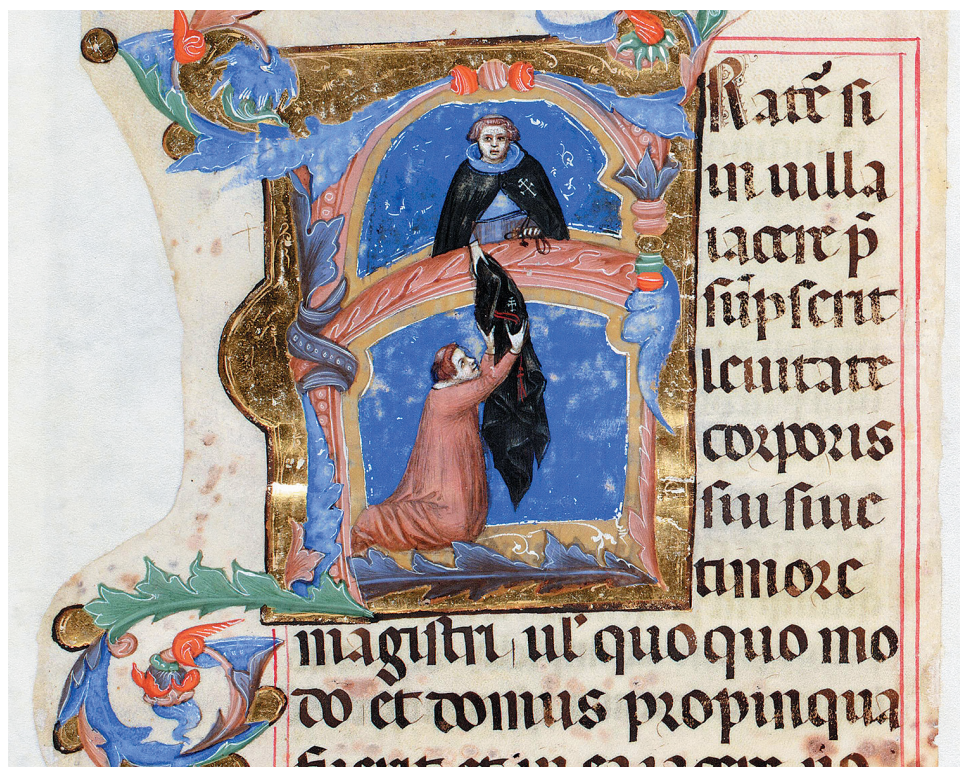 Rat̃e si
in uilla
iacere p̄
sūpserit
leuitate
corporis
sui siue
timore
magistri, ul' quoquo mo
do et domus propinqua
fuerit et in